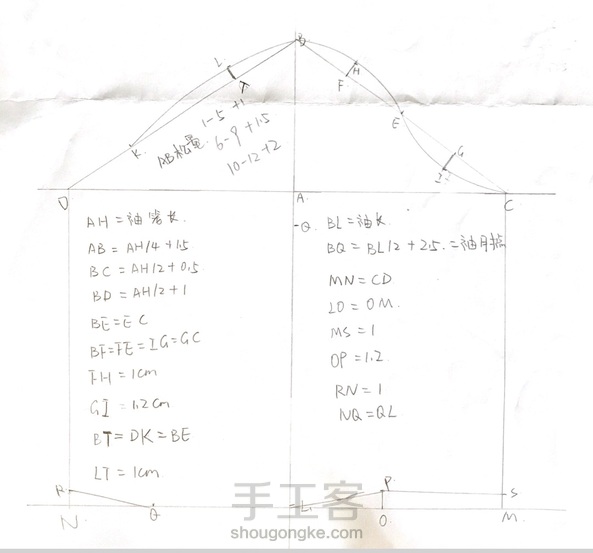 B
L
H
T
F
E
K
G
I
AB松量. 1-5 +1
6-9 +1.5
10-12 +2
D
A
C
AH = 袖笼长.
AB = AH/4 + 1.5
BC = AH/2 + 0.5
BD = AH/2 + 1
BE = EC
BF = FE = IG = GC
FH = 1cm
GI = 1.2cm
BT = DK = BE
LT = 1cm
Q. BL = 袖长
BQ = BL/2 + 2.5. = 袖月扌
MN = CD
LO = OM.
MS = 1
OP = 1.2
RN = 1
NQ = QL
R
P
S
N.
Q
L
O.
M.
手工客
shougongke.com